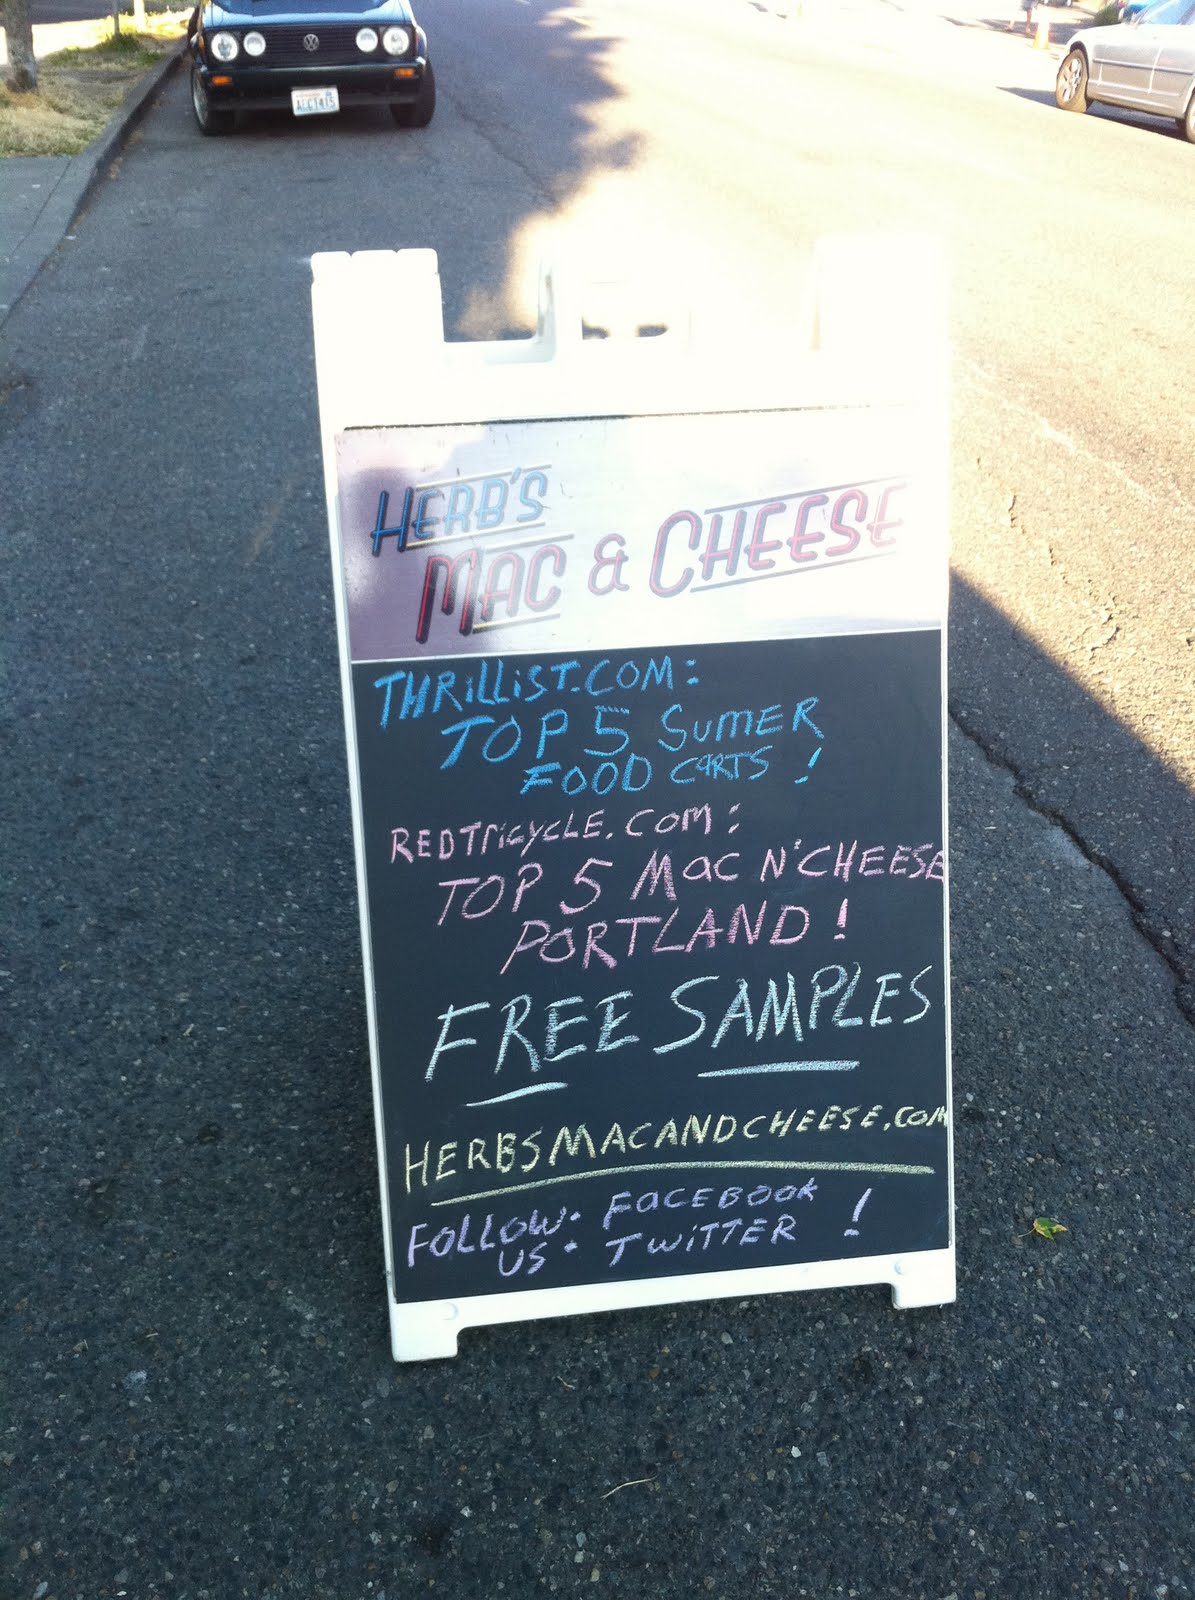 HERB'S
MAC & CHEESE
THRILLIST.COM:
TOP 5 SUMER
FOOD CARTS !
REDTRICYCLE.COM:
TOP 5 MAC N' CHEESE
PORTLAND!
FREE SAMPLES
HERBSMACANDCHEESE.COM
FOLLOW: FACEBOOK
US: TWITTER !